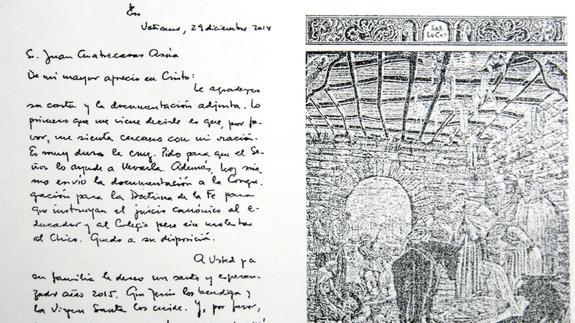 Vaticano, 29 diciembre 2014
S. Juan Cuatrecasas Asúa
De mi mayor aprecio en Cristo:
Le agradezco
su carta y la documentación adjunta. Lo
primero que me viene decirle es que, por fa-
vor, me sienta cercano con mi oración.
Es muy dura la cruz. Pido para que el Se-
ñor lo ayude a llevarla. Además, hoy mis-
mo envío la documentación a la Congre-
gación para la Doctrina de la Fe para
que instruyan el juicio canónico al e-
ducador y al Colegio pero sin molestar
al Chico. Quedo a su disposición.
A Usted y a
su familia le deseo un santo y esperan-
zado año 2015. Que Jesús los bendiga y
la Virgen Santa los cuide. Y, por favor,
SAS
LUCAS